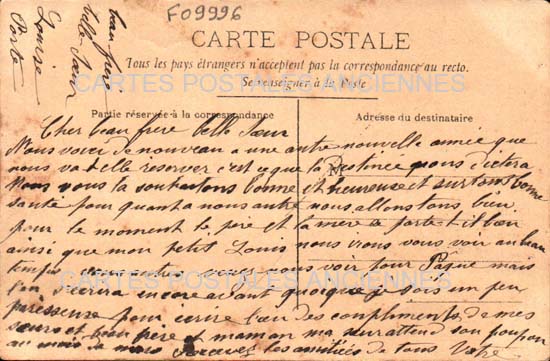 F09996
beau frère
belle Sœur
Louise
Porte
CARTE POSTALE
Tous les pays étrangers n'acceptent pas la correspondance au recto.
Se renseigner à la Poste
CARTES POSTALES ANCIENNES
Partie réservée à la correspondance
Adresse du destinataire
Cher beau frere belle Sœur
Nous voici de nouveau a une autre nouvelle année que
nous vat elle reserver c'est ce que la Destinée nous dictera
Nous vous la souhaitons bonne et heureuse et surtout bonne
santé pour quant a nous autre nous allons tous bien
pour le moment le père et la mère se porte t il bien
ainsi que mon petit Louis nous irons vous voir au beau
temps voir Pâque mais
j'en ecrirai encore avant quoique je sois un peu
paresseuse pour ecrire bien des compliments de mes
sœurs et beau frère et maman ma sur attend son poupon
au mois de mars Recevez les amitiées de tous Votre
CARTES POSTALES ANCIENNES